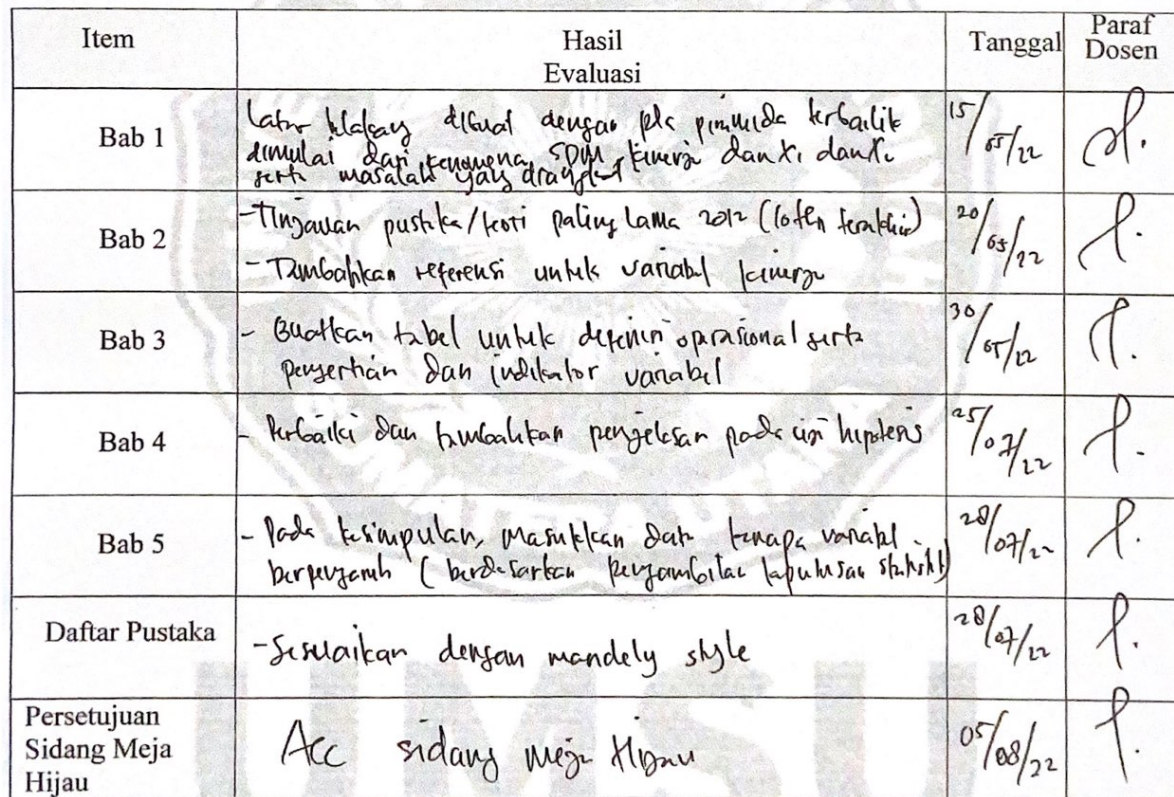 Item Hasil Evaluasi Tanggal Paraf Dosen
Bab 1 Latar belakang dibuat dengan pola piramida terbalik 15/05/22
dimulai dari fenomena, SDM, kinerja dan X1 dan X2
serta masalah yang diangkat
Bab 2 -Tinjauan pustaka/teori paling lama 2012 (10 thn terakhir) 20/05/22
- Tambahkan referensi untuk variabel kinerja
Bab 3 - Buatkan tabel untuk definisi oprasional serta 30/05/22
pengertian dan indikator variabel
Bab 4 - Perbaiki dan tambahkan penjelasan pada uji hipotesis 25/07/22
Bab 5 - Pada kesimpulan, masukkan data kenapa variabel 28/07/22
berpengaruh (berdasarkan pengambilan keputusan statistik)
Daftar Pustaka -Sesuaikan dengan mandely style 28/07/22
Persetujuan
Sidang Meja Acc sidang meja Hijau 05/08/22
Hijau
SUMATERA UTARA
UMSU